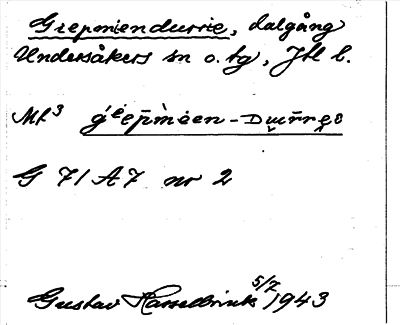 Grepmiendurrie, dalgång
Undersåkers sn o. tg, Jtl l.
Ml³
G 71 A7 nr 2
Gustav Hasselbrink 5/7 1943